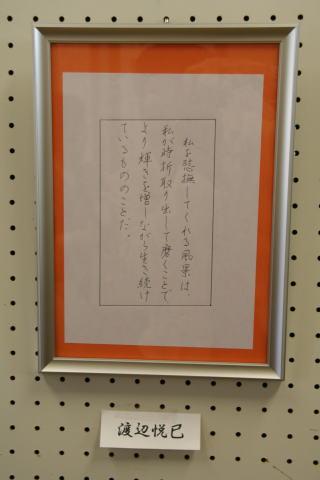 私を慰撫してくれる風景は、
私が時折取り出して磨くことで
より輝きを増しながら生き続け
ているもののことだ。
渡辺悦巳